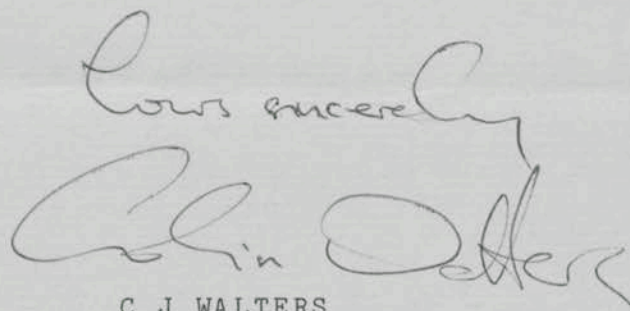 Yours sincerely
Colin Walters
C J WALTERS